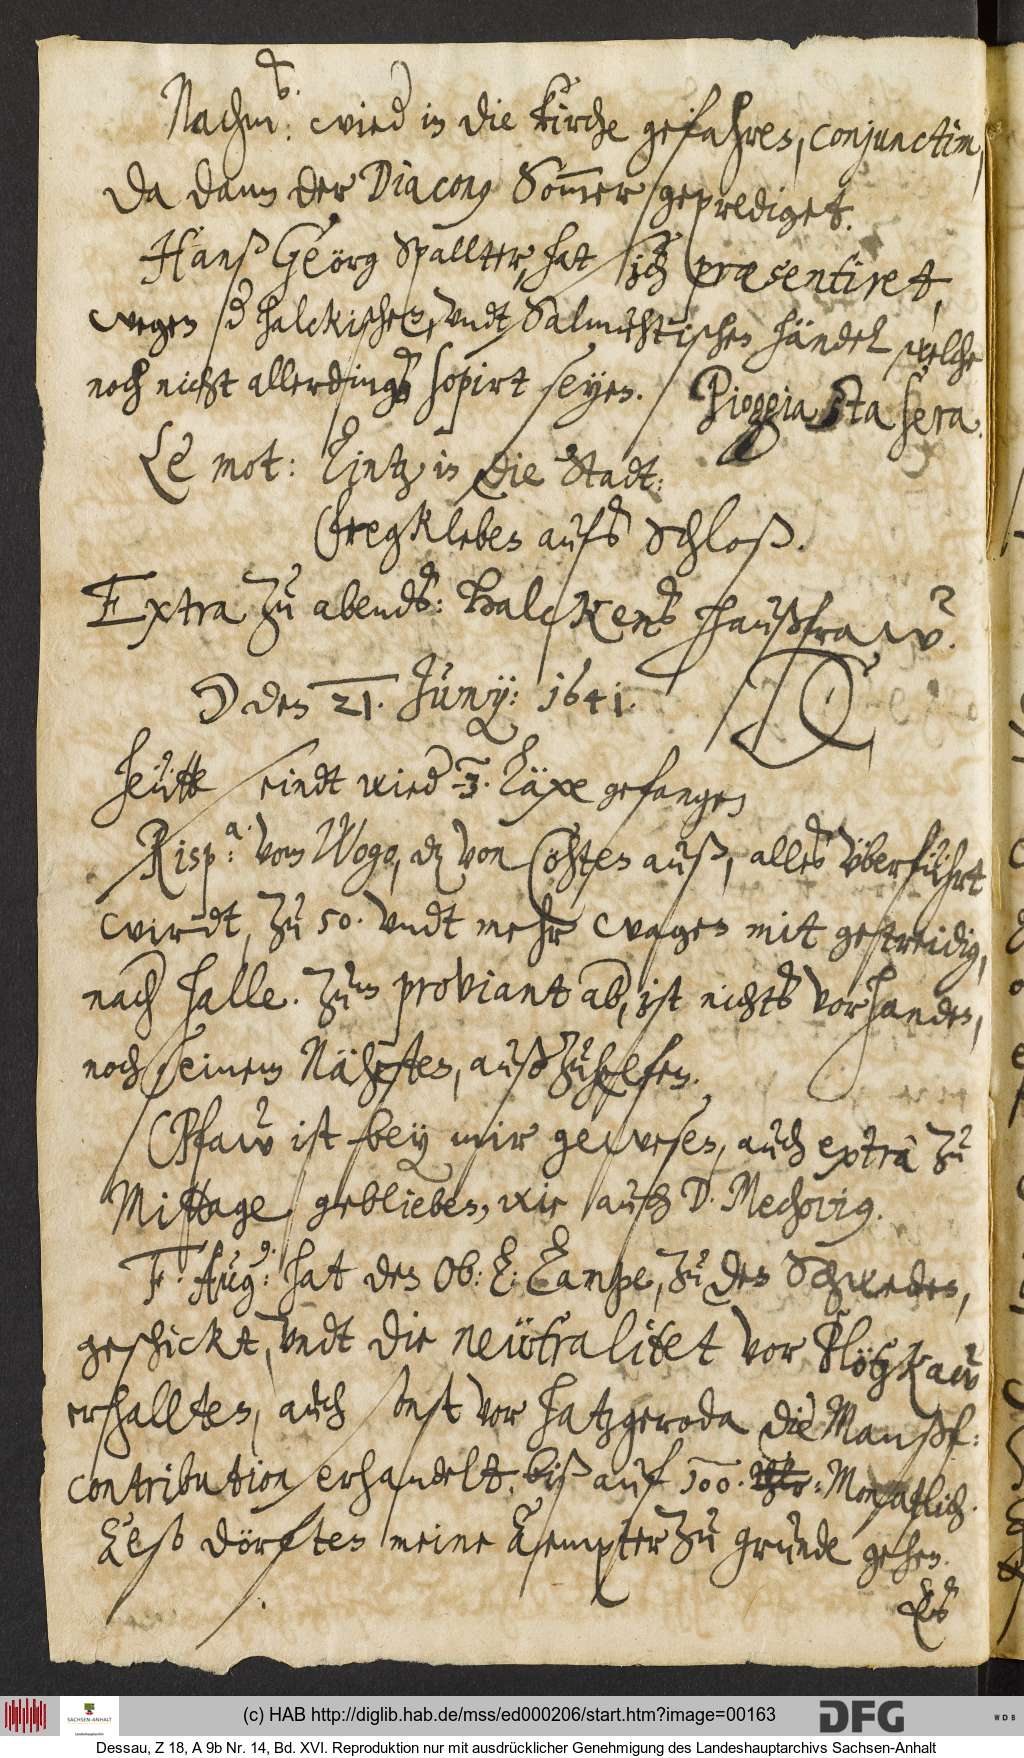 Nachm: wied in die kirche gefahren, conjunctim,
da dann der Diacon9 Som̄er geprediget.
Hanß Geörg Spallter, hat sich præsentiret,
wegen halckischen, vndt Salmuhtischen händel welche
noch nicht allerdings sopirt seyen. Pioggia sta sera.
Le mot: Eintz in die Stadt:
aufs Schloß.
Extra zu abends: halckens haußfraw.
☽ den 21. Junij: 1641.
heütte seindt wied 3. gefangen
Risp.a: vom Wogo, dz von Cöhten auß, alles vberführt
wirdt, zu 50. vndt mehr wagen mit gestreidig,
nach halle. Zum proviant ab, ist nichts vorhanden,
noch seinem Nähesten, außzuhelfen.
Pfaw ist bey mir gewesen, auch extra zu
Mittage geblieben, wie auch D. Mechovig.
F. Aug9: hat den Ob: L: Lampe, zu den Schweden,
geschickt, vndt die neütralitet vor Plötzkaw
erhallten, auch sonst vor hatzgeroda die Manßf:
contribution erhandelt, biß auf 500. Thlr: Monatlich.
Eß dörften meine Æmpter zu grunde gehen.
Es
(c) HAB http://diglib.hab.de/mss/ed000206/start.htm?image=00163
SACHSEN-ANHALT
Landeshauptarchiv
DFG
WDB
Dessau, Z 18, A 9b Nr. 14, Bd. XVI. Reproduktion nur mit ausdrücklicher Genehmigung des Landeshauptarchivs Sachsen-Anhalt